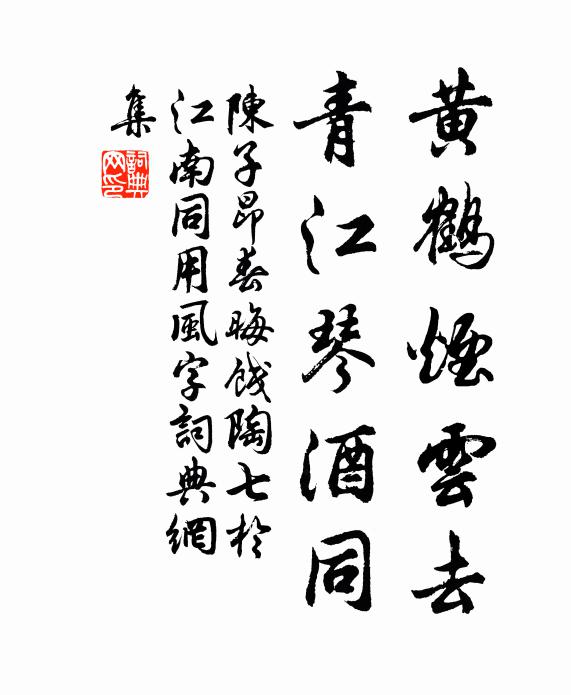 黄鶴煙雲去
青江琴酒同
陳子昂春晦餞陶七於
江南同用風字詞典網
集
詞典
网印